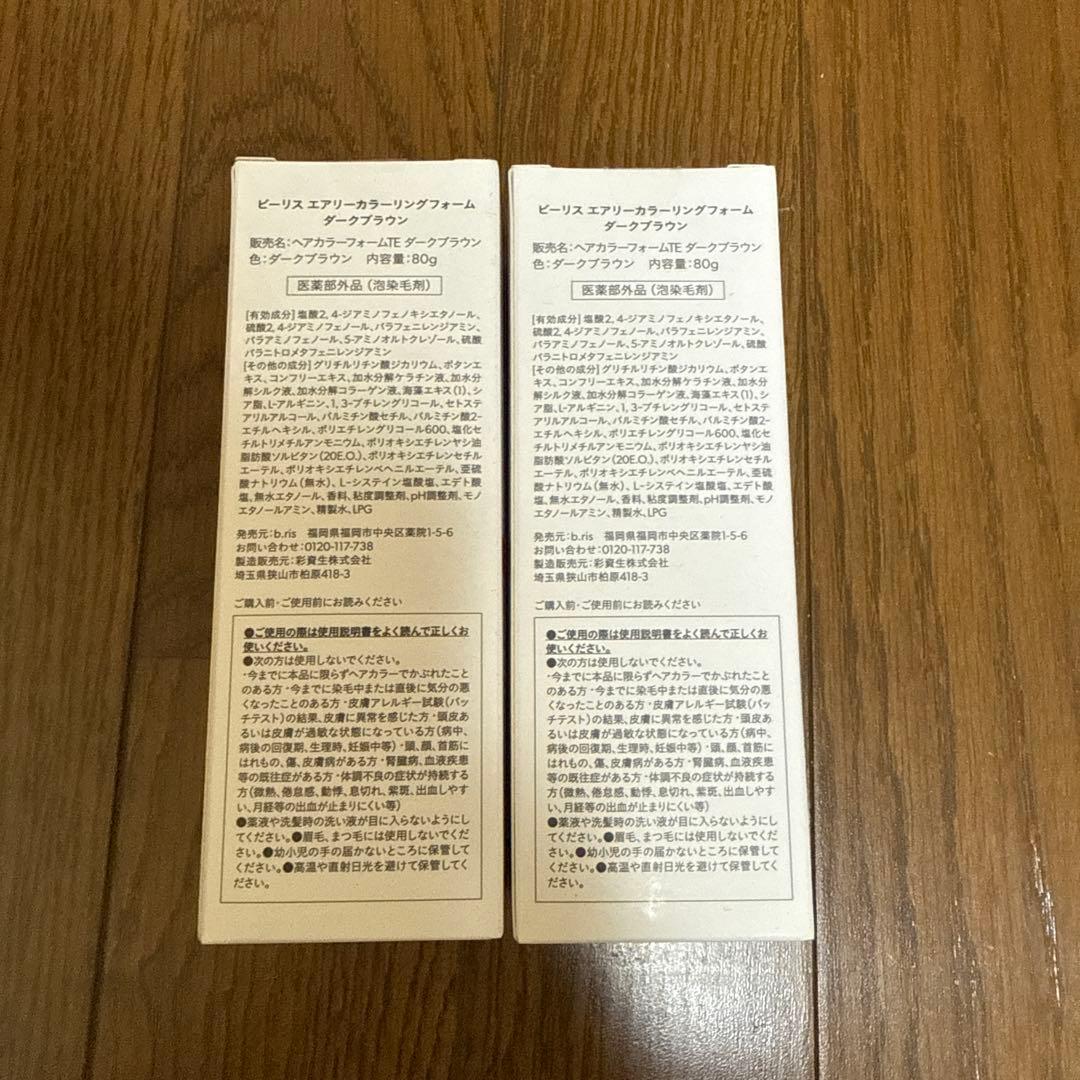 ビーリス エアリーカラーリングフォーム
ダークブラウン
販売名：ヘアカラーフォームTE ダークブラウン
色：ダークブラウン　内容量：80g
医薬部外品（泡染毛剤）
［有効成分］塩酸2, 4-ジアミノフェノキシエタノール、
硫酸2, 4-ジアミノフェノール、パラフェニレンジアミン、
パラアミノフェノール、5-アミノオルトクレゾール、硫酸
パラニトロメタフェニレンジアミン
［その他の成分］グリチルリチン酸ジカリウム、ボタンエ
キス、コンフリーエキス、加水分解ケラチン液、加水分
解シルク液、加水分解コラーゲン液、海藻エキス（1）、シ
ア脂、L-アルギニン、1, 3-ブチレングリコール、セトステ
アリルアルコール、パルミチン酸セチル、パルミチン酸2-
エチルヘキシル、ポリエチレングリコール600、塩化セ
チルトリメチルアンモニウム、ポリオキシエチレンヤシ油
脂肪酸ソルビタン（20E.O.）、ポリオキシエチレンセチル
エーテル、ポリオキシエチレンベヘニルエーテル、亜硫
酸ナトリウム（無水）、L-システイン塩酸塩、エデト酸
塩、無水エタノール、香料、粘度調整剤、pH調整剤、モノ
エタノールアミン、精製水、LPG
発売元：b.ris　福岡県福岡市中央区薬院1-5-6
お問い合わせ：0120-117-738
製造販売元：彩資生株式会社
埼玉県狭山市柏原418-3
ご購入前・ご使用前にお読みください
●ご使用の際は使用説明書をよく読んで正しくお
使いください。
●次の方は使用しないでください。
・今までに本品に限らずヘアカラーでかぶれたこと
のある方・今までに染毛中または直後に気分の悪
くなったことのある方・皮膚アレルギー試験（パッ
チテスト）の結果、皮膚に異常を感じた方・頭皮あ
るいは皮膚が過敏な状態になっている方（病中、
病後の回復期、生理時、妊娠中等）・頭、顔、首筋に
はれもの、傷、皮膚病がある方・腎臓病、血液疾患
等の既往症がある方・体調不良の症状が持続する
方（微熱、倦怠感、動悸、息切れ、紫斑、出血しやす
い、月経等の出血が止まりにくい等）
●薬液や洗髪時の洗い液が目に入らないようにし
てください。●眉毛、まつ毛には使用しないでくだ
さい。●幼小児の手の届かないところに保管してく
ださい。●高温や直射日光を避けて保管してくだ
さい。
ビーリス エアリーカラーリングフォーム
ダークブラウン
販売名：ヘアカラーフォームTE ダークブラウン
色：ダークブラウン　内容量：80g
医薬部外品（泡染毛剤）
［有効成分］塩酸2, 4-ジアミノフェノキシエタノール、
硫酸2, 4-ジアミノフェノール、パラフェニレンジアミン、
パラアミノフェノール、5-アミノオルトクレゾール、硫酸
パラニトロメタフェニレンジアミン
［その他の成分］グリチルリチン酸ジカリウム、ボタンエ
キス、コンフリーエキス、加水分解ケラチン液、加水分
解シルク液、加水分解コラーゲン液、海藻エキス（1）、シ
ア脂、L-アルギニン、1, 3-ブチレングリコール、セトステ
アリルアルコール、パルミチン酸セチル、パルミチン酸2-
エチルヘキシル、ポリエチレングリコール600、塩化セ
チルトリメチルアンモニウム、ポリオキシエチレンヤシ油
脂肪酸ソルビタン（20E.O.）、ポリオキシエチレンセチル
エーテル、ポリオキシエチレンベヘニルエーテル、亜硫
酸ナトリウム（無水）、L-システイン塩酸塩、エデト酸
塩、無水エタノール、香料、粘度調整剤、pH調整剤、モノ
エタノールアミン、精製水、LPG
発売元：b.ris　福岡県福岡市中央区薬院1-5-6
お問い合わせ：0120-117-738
製造販売元：彩資生株式会社
埼玉県狭山市柏原418-3
ご購入前・ご使用前にお読みください
●ご使用の際は使用説明書をよく読んで正しくお
使いください。
●次の方は使用しないでください。
・今までに本品に限らずヘアカラーでかぶれたこと
のある方・今までに染毛中または直後に気分の悪
くなったことのある方・皮膚アレルギー試験（パッ
チテスト）の結果、皮膚に異常を感じた方・頭皮あ
るいは皮膚が過敏な状態になっている方（病中、
病後の回復期、生理時、妊娠中等）・頭、顔、首筋に
はれもの、傷、皮膚病がある方・腎臓病、血液疾患
等の既往症がある方・体調不良の症状が持続する
方（微熱、倦怠感、動悸、息切れ、紫斑、出血しやす
い、月経等の出血が止まりにくい等）
●薬液や洗髪時の洗い液が目に入らないようにし
てください。●眉毛、まつ毛には使用しないでくだ
さい。●幼小児の手の届かないところに保管してく
ださい。●高温や直射日光を避けて保管してくだ
さい。